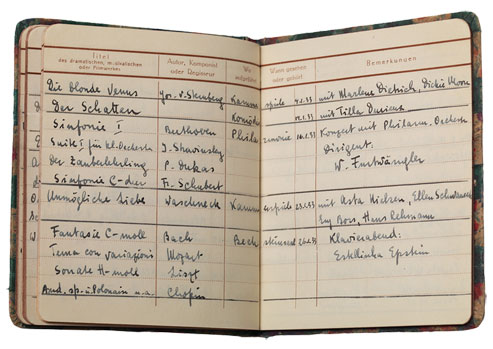 Titel des dramatischen, musikalischen oder Filmwerkes Autor, Komponist oder Regisseur Wo aufgeführt Wann gesehen oder gehört Bemerkungen
Die blonde Venus Jos. v. Sternberg Kammerspiele 4.1.33 mit Marlene Dietrich, Dickie Moore
Der Schatten Komödie mit Tilla Durieux
Sinfonie I Beethoven Philharmonie Konzert mit Philharm. Orchester
Suite I für kl. Orchester I. Strawinsky Dirigent:
Der Zauberlehrling P. Dukas W. Furtwängler
Sinfonie C-dur Fr. Schubert
Unmögliche Liebe Waschneck Kammerspiele mit Asta Nielsen, Ellen Schwanneke
Ery Bos, Hans Rehmann
Fantasie C-moll Bach Bechsteinsaal Klavierabend:
Tema con variazioni Mozart Epstein
Sonate H-moll Liszt
And. sp. u. Polonaise u.a. Chopin